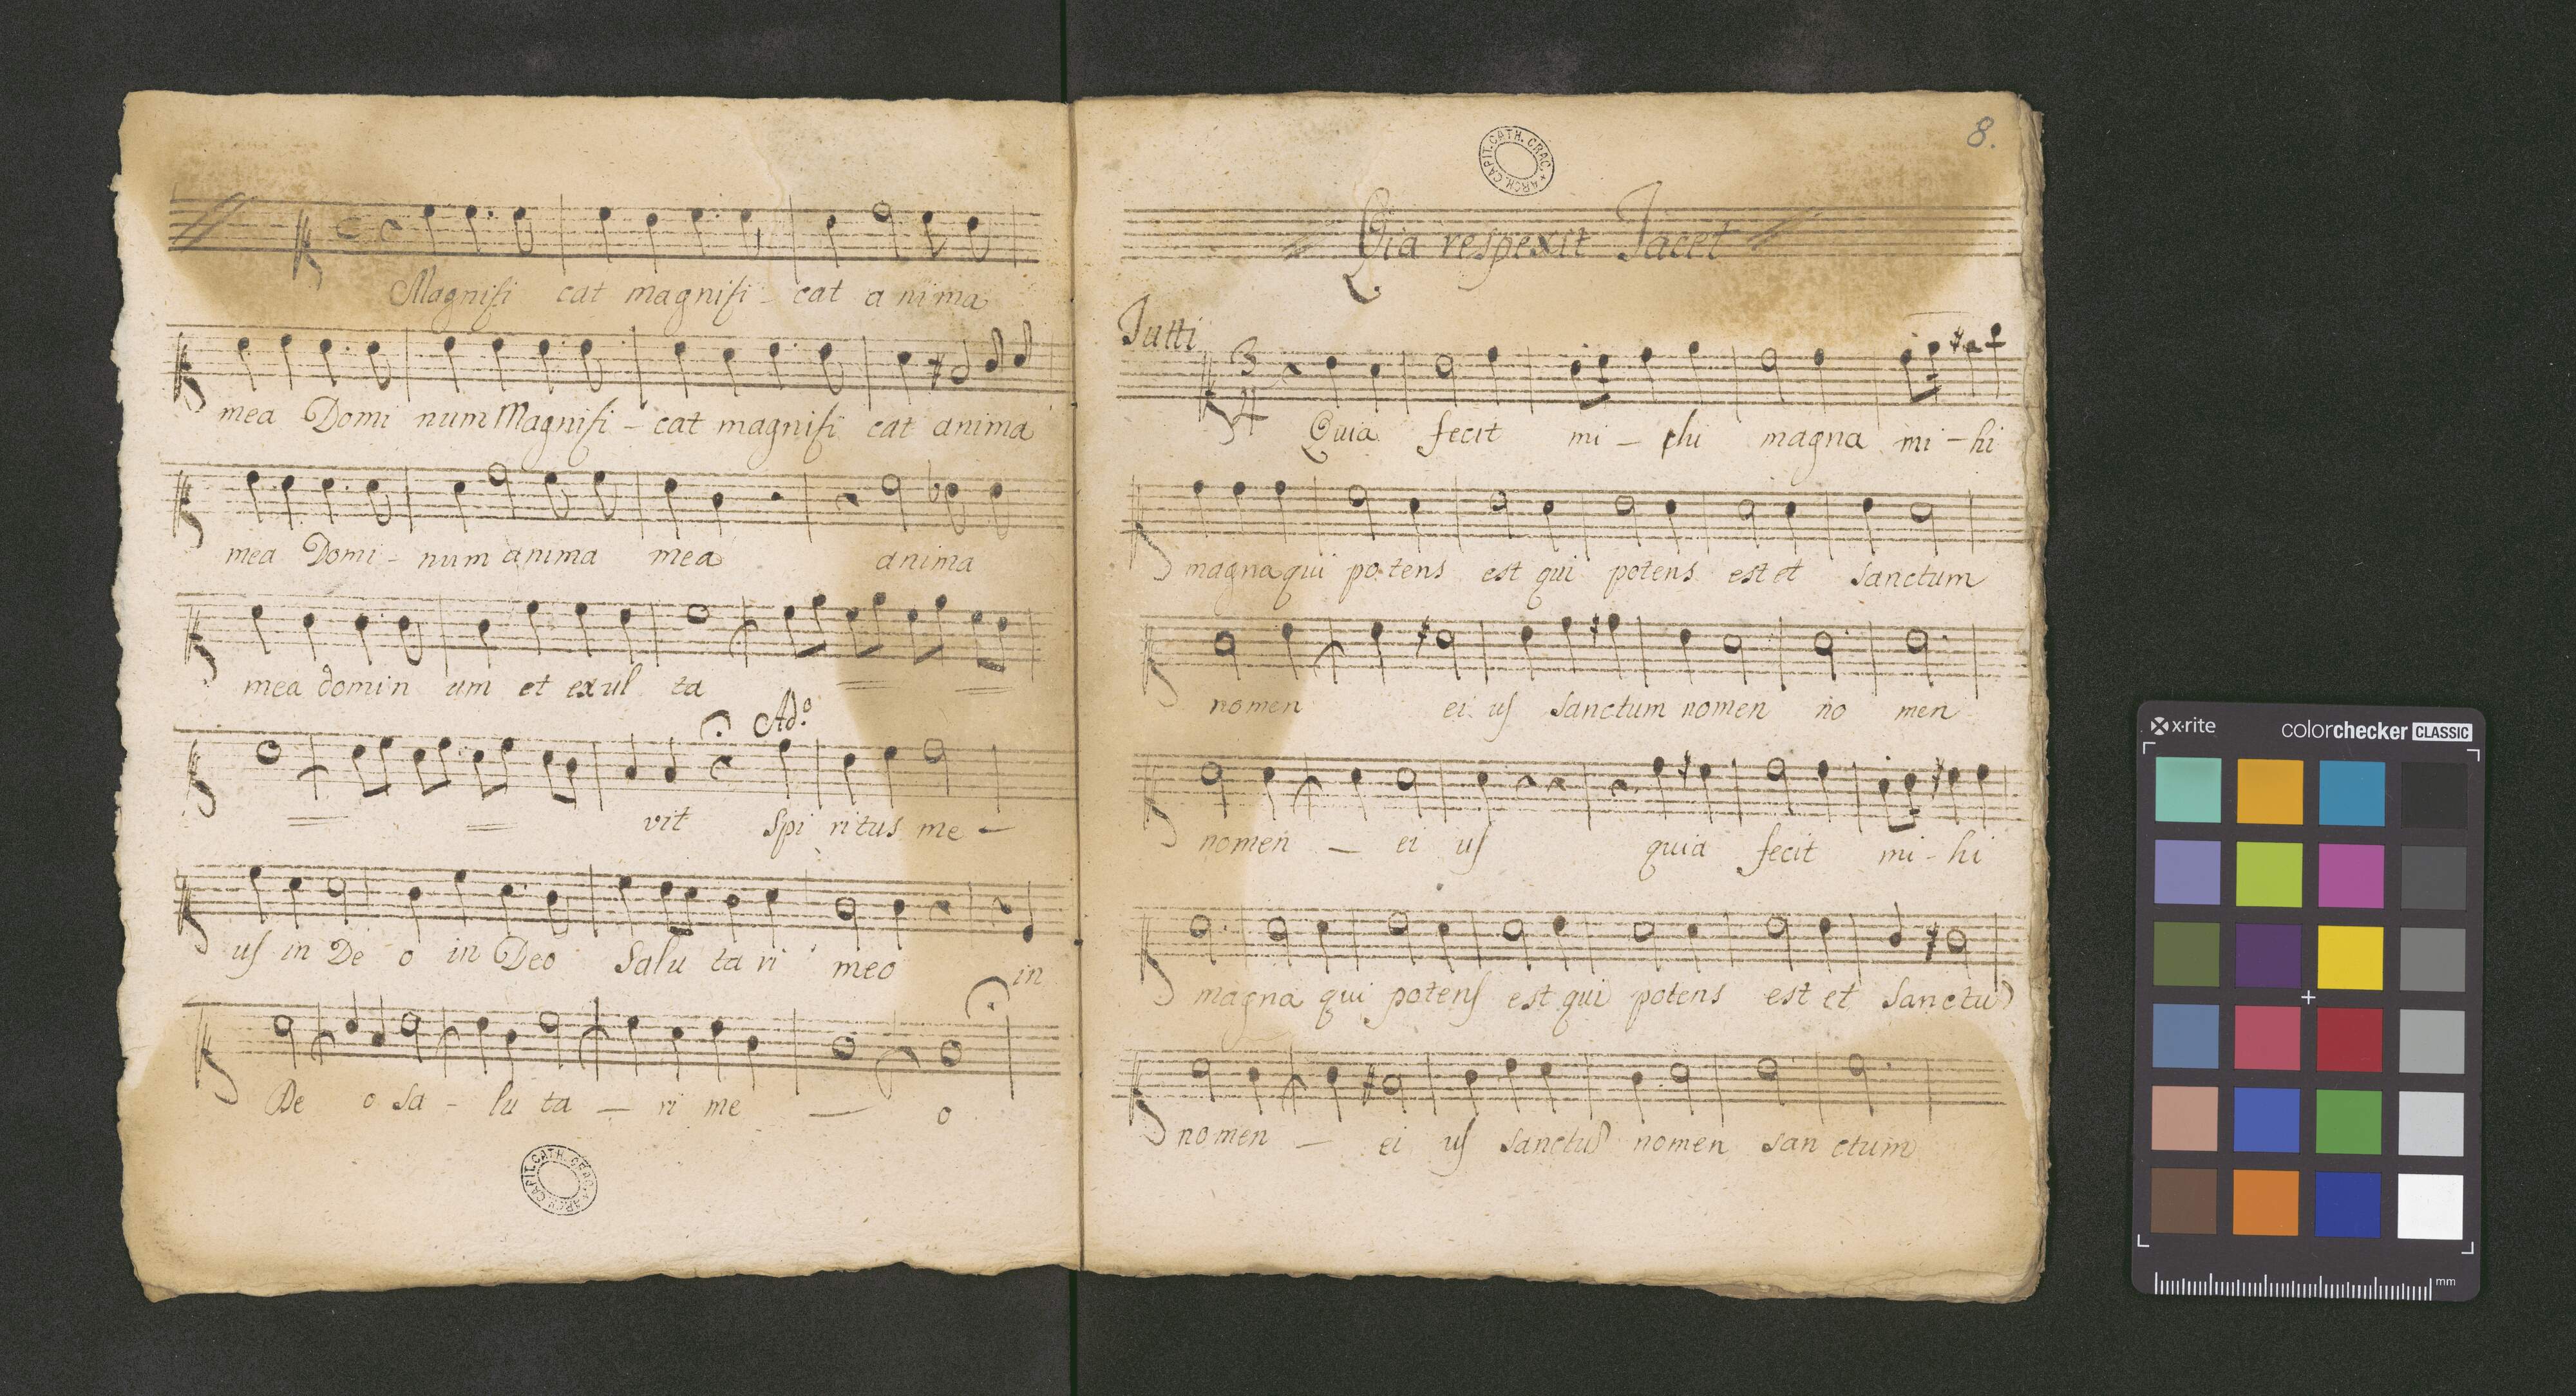 Magnifi cat magnifi - cat a nima
mea Domi num Magnifi - cat magnifi cat anima
mea Domi - num anima mea anima
mea domin um et exul ta
Ad.o
vit Spi ritus me -
us in De o in Deo Salu ta ri meo in
De o Sa - lu ta - ri me - o
ARCH. CAPIT. CATH. CRAC.
8.
ARCH. CAPIT. CATH. CRAC.
Qia respexit Tacet
Tutti
3
4
Quia fecit mi - chi magna mi - hi
magna qui potens est qui potens est et sanctum
nomen ei us Sanctum nomen no men
nomen - ei us quia fecit mi - hi
magna qui potens est qui potens est et Sanctu
nomen - ei us Sanctu nomen San ctum
x-rite
colorchecker CLASSIC
mm